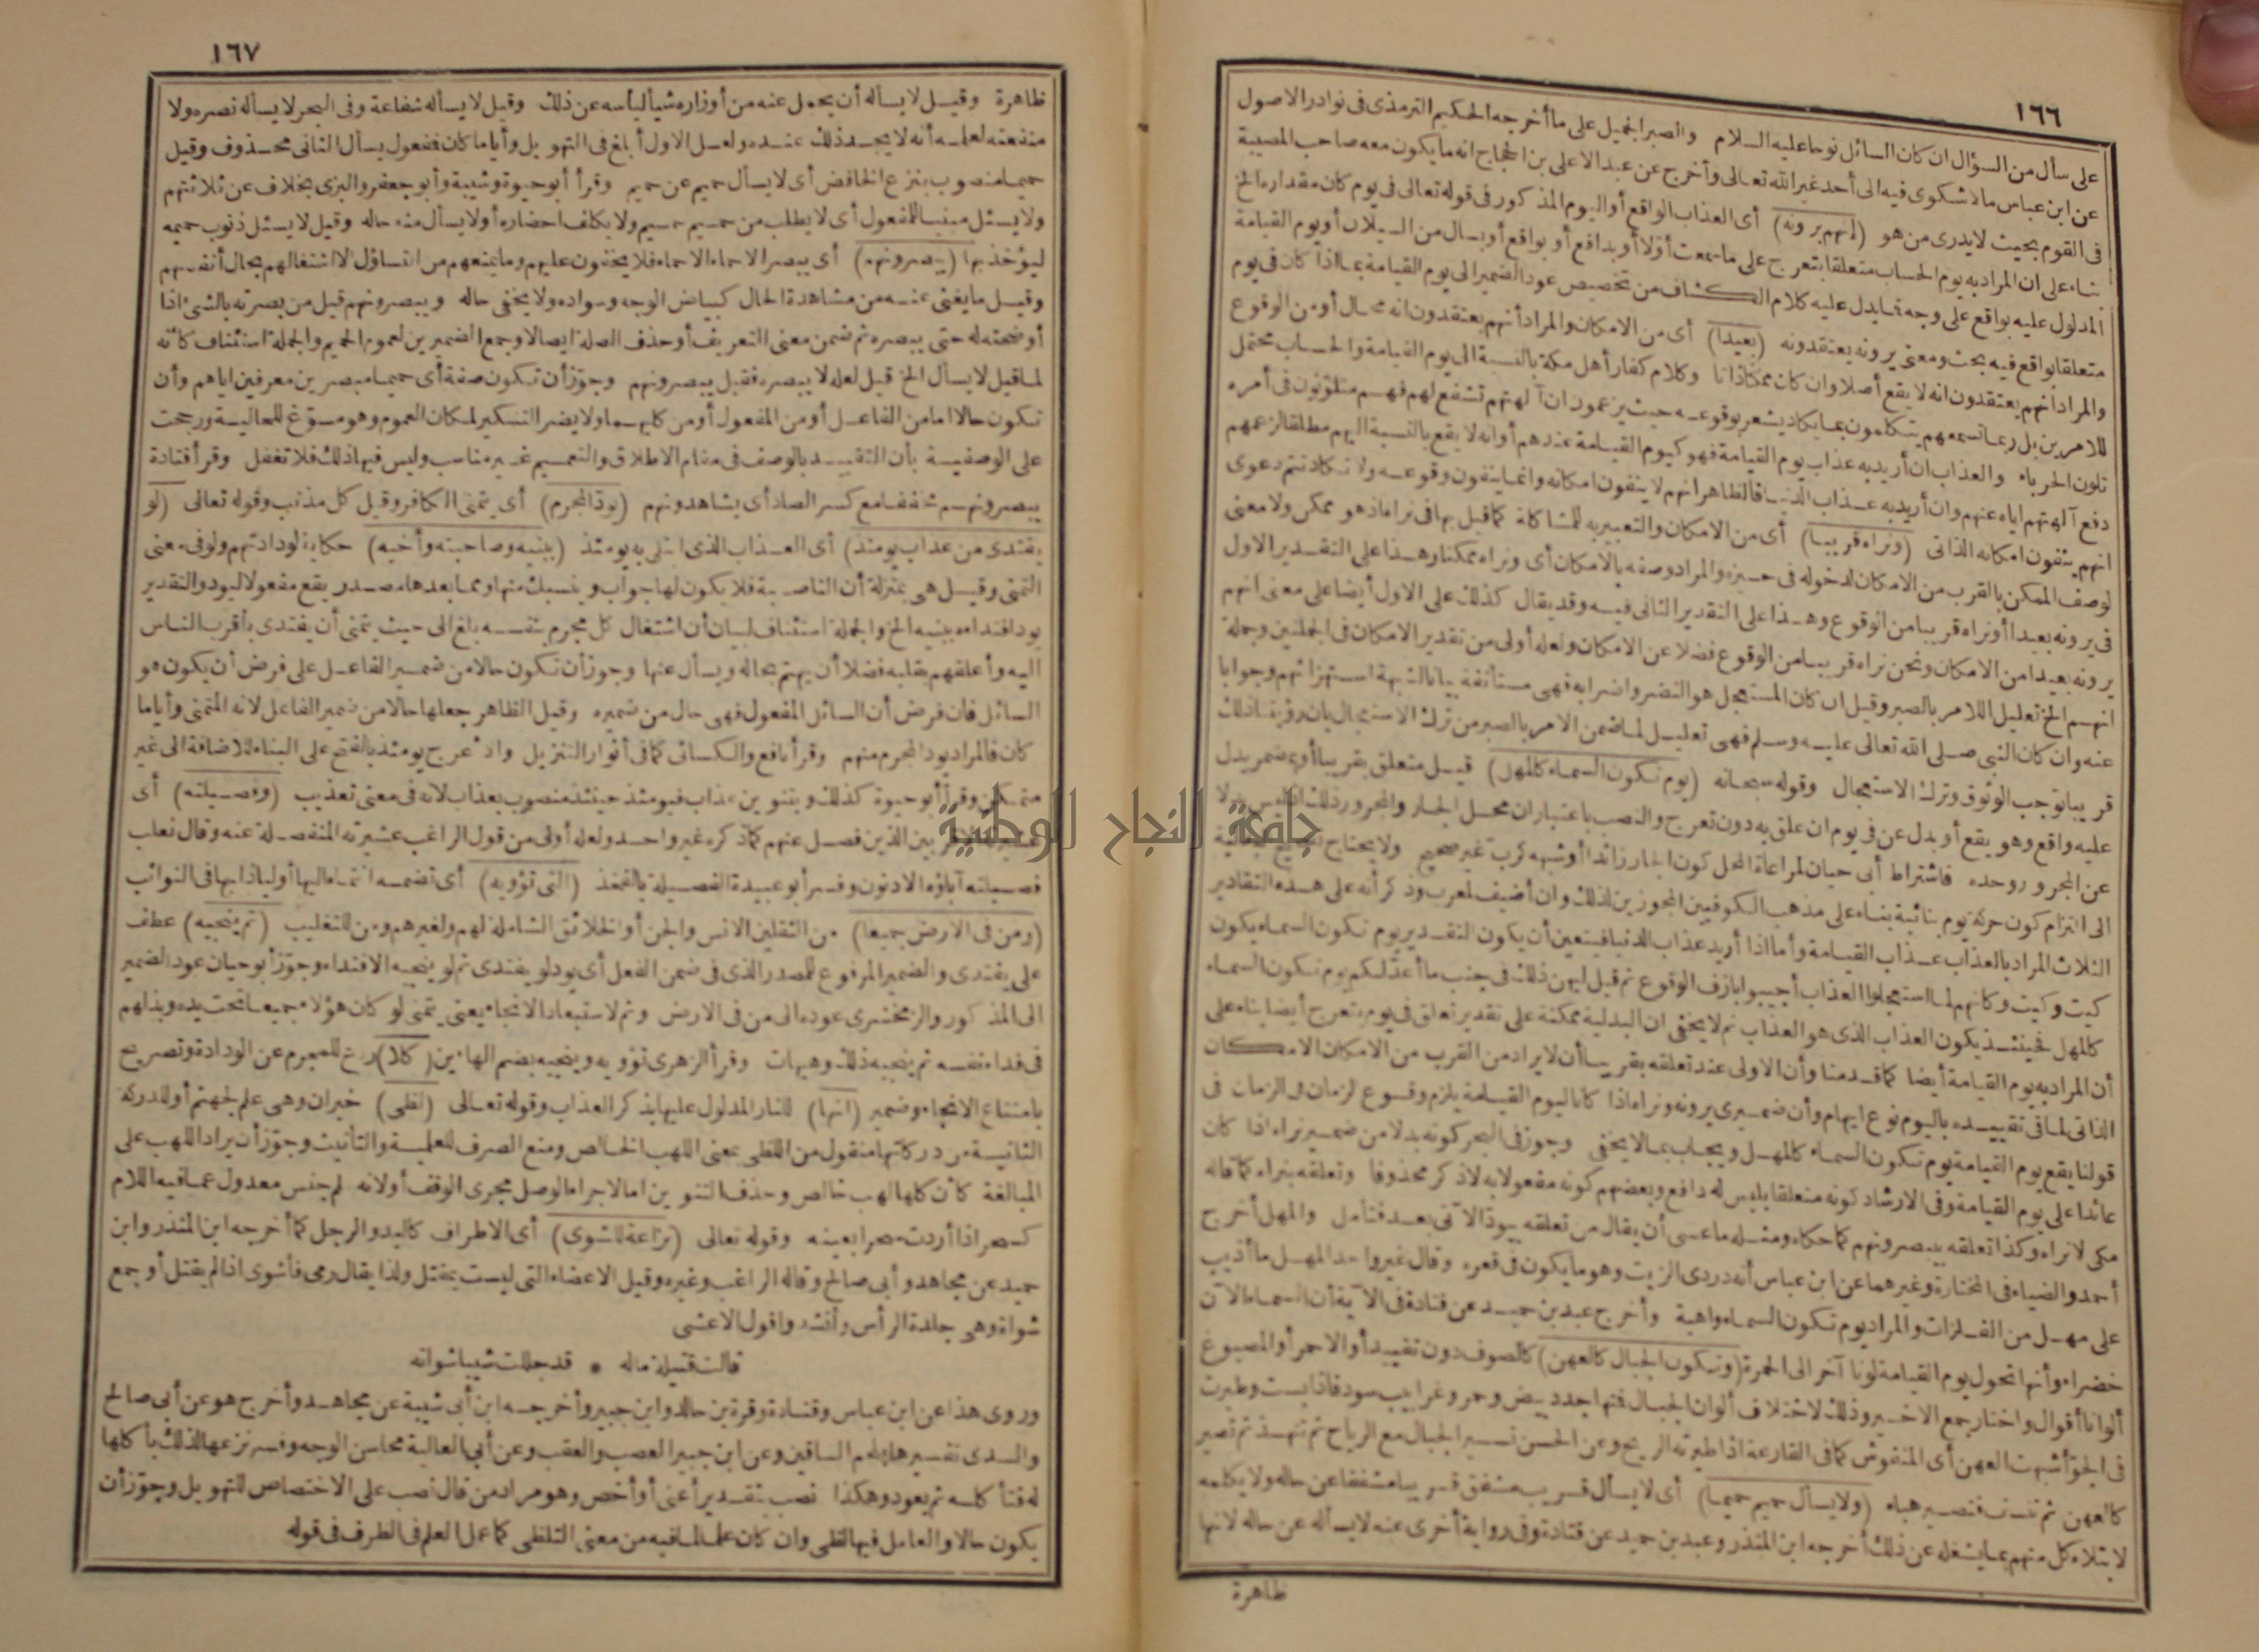 ١٦٦
على سأل من السؤال ان كان السائل نوحا عليه السلام والصبر الجميل على ما أخرجه الحكيم الترمذى فى نوادر الاصول
عن ابن عباس ما لا شكوى فيه الى أحد غير الله تعالى وأخرج عن عبد الاعلى بن الحجاج انه ما يكون معه صاحب المصيبة
فى القوم بحيث لا يدرى من هو (انهم يرونه) أى العذاب الواقع أو اليوم المذكور فى قوله تعالى فى يوم كان مقداره الخ
بناء على ان المراد به يوم الحساب متعلقا بتعرج على ما سمعت أولا أو بدافع أو بواقع أو بسال من السيلان أو يوم القيامة
المدلول عليه بواقع على وجه فما يدل عليه كلام الكشاف من تخصيص عود الضمير الى يوم القيامة بما اذا كان فى يوم
متعلقا بواقع فيه بحث ومعنى يرونه يعتقدونه (بعيدا) أى من الامكان والمراد أنهم يعتقدون انه محال أو من الوقوع
والمراد انهم يعتقدون انه لا يقع أصلا وان كان ممكنا ذاتا وكلام كفار أهل مكة بالنسبة الى يوم القيامة والحساب محتمل
للامرين بل ربما تسمعهم يتكلمون بما يكاد يشعر بوقوعه حيث يزعمون ان آلهتهم تشفع لهم فهم متلونون فى أمره
تلون الحرباء والعذاب ان أريد به عذاب يوم القيامة فهو كيوم القيامة عندهم أو انه لا يقع بالنسبة اليهم مطلقا لزعمهم
دفع آلهتهم اياه عنهم وان أريد به عذاب الدنيا فالظاهر انهم لا ينفون امكانه وانما ينفون وقوعه ولا تكاد تتم دعوى
انهم ينفون امكانه الذاتى (ونراه قريبا) أى من الامكان والتعبير به للمشاكلة كما قيل بها فى نراه اذ هو ممكن ولا معنى
لوصف الممكن بالقرب من الامكان لدخوله فى حيزه والمراد وصفه بالامكان أى ونراه ممكنا وهذا على التقدير الاول
فى يرونه بعيدا أو نراه قريبا من الوقوع وهذا على التقدير الثانى فيه وقد يقال كذلك على الاول أيضا على معنى انهم
يرونه بعيدا من الامكان ونحن نراه قريبا من الوقوع فضلا عن الامكان ولعله أولى من تقدير الامكان فى الجملتين وجملة
انهم الخ تعليل للامر بالصبر وقيل ان كان المستعجل هو النضر واضرابه فهى مستأنفة بيانا لشبهة استهزائهم وجوابا
عنه وان كان النبى صلى الله تعالى عليه وسلم فهى تعليل لما ضمن الامر بالصبر من ترك الاستعجال بان رؤيتنا ذلك
قريبا توجب الوثوق وترك الاستعجال وقوله سبحانه (يوم تكون السماء كالمهل) قيل متعلق بقريبا أو بمضمر يدل
عليه واقع وهو يقع أو بدل عن فى يوم ان علق به دون تعرج والنصب باعتبار ان محل الجار والمجرور ذلك اذ ليس بدلا
عن المجرور وحده فاشتراط أبى حيان لمراعاة المحل كون الجار زائدا أو شبهه كرب غير صحيح ولا يحتاج
الى التزام كون حركة يوم بنائية بناء على مذهب الكوفيين المجوزين لذلك وان أضيف لمعرب وذكر أنه على هذه التقادير
الثلاث المراد بالعذاب عذاب القيامة وأما اذا أريد عذاب الدنيا فيتعين أن يكون التقدير يوم تكون السماء يكون
كيت وكيت وكأنهم لما استعجلوا العذاب أجيبوا بازف الوقوع ثم قيل ليهن ذلك فى جنب ما أعد لكم يوم تكون السماء
كالمهل فحينئذ يكون العذاب الذى هو العذاب ثم لا يخفى ان البدلية ممكنة على تقدير تعلق فى يوم بتعرج أيضا بناء على
أن المراد به يوم القيامة أيضا كما قدمنا وأن الاولى عند تعلقه بقريبا أن لا يراد من القرب من الامكان الامكان
الذاتى لما فى تقييده باليوم نوع ايهام وأن ضميرى يرونه ونراه اذا كانا ليوم القيامة يلزم وقوع لزمان فى الزمان فى
قولنا يقع يوم القيامة يوم تكون السماء كالمهل ويجاب بما لا يخفى وجوز فى البحر كونه بدلا من ضمير نراه اذا كان
عائدا على يوم القيامة وفى الارشاد كونه متعلقا بليس له دافع وبعضهم كونه مفعولا به لاذكر محذوفا وتعلقه بنراه كما قاله
مكى لا نراه وكذا تعلقه بيبصرونهم كما حكاه ومثله ما عسى أن يقال من تعلقه بيود الآتى بعد فتأمل والمهل أخرج
أحمد والضياء فى المختارة وغيرهما عن ابن عباس أنه دردى الزيت وهو ما يكون فى قعره وقال غير واحد المهل ما أذيب
على مهل من الفلزات والمراد يوم تكون السماء واهية وأخرج عبد بن حميد عن قتادة فى الآية أن السماء الآن
خضراء وأنها تحول يوم القيامة لونا آخر الى الحمرة (وتكون الجبال كالعهن) كالصوف دون تقييد أو الاحمر أو المصبوغ
ألوانا أقوال واختار جمع الاخير وذلك لاختلاف ألوان الجبال فمنها جدد بيض وحمر وغرابيب سود فاذا بست وطيرت
فى الجو أشبهت العهن أى المنفوش كما فى القارعة اذا طيرته الريح وعن الحسن تسير الجبال مع الرياح ثم تنهد ثم تصير
كالعهن ثم تنسف فتصير هباء (ولا يسأل حميم حميما) أى لا يسأل قريب مشفق قريبا مشفقا عن حاله ولا يكلمه
لابتلاء كل منهم بما يشغله عن ذلك أخرجه ابن المنذر وعبد بن حميد عن قتادة وفى رواية أخرى عنه لا يسأله عن حاله لانها
ظاهرة
١٦٧
ظاهرة وقيل لا يسأله أن يحمل عنه من أوزاره شيأ ليأسه عن ذلك وقيل لا يسأله شفاعة وفى البحر لا يسأله نصره ولا
منفعته لعلمه أنه لا يجد ذلك عنده ولعل الاول أبلغ فى التهويل وأياما كان فمفعول يسأل الثانى محذوف وقيل
حميما منصوب بنزع الخافض أى لا يسأل حميم عن حميم وقرأ أبو حيوة وشيبة وأبو جعفر والبزى بخلاف عن ثلاثتهم
ولا يسئل مبنيا للمفعول أى لا يطلب من حميم حميم ولا يكلف احضاره أو لا يسأل منه حاله وقيل لا يسئل ذنوب حميمه
ليؤخذ بها (يبصرونهم) أى يبصر الاحماء الاحماء فلا يخفون عليهم وما يمنعهم من التساؤل الا اشتغالهم بحال أنفسهم
وقيل ما يغنى عنه من مشاهدة الحال كبياض الوجه وسواده ولا يخفى حاله ويبصرونهم قيل من بصرته بالشئ اذا
أوضحته له حتى يبصره ثم ضمن معنى التعريف أو حذف الصلة ايصالا وجمع الضميرين لعموم الحميم والجملة استئناف كأنه
لما قيل لا يسأل الخ قيل لعله لا يبصره فقيل يبصرونهم وجوز أن تكون صفة أى حميما مبصرين معرفين اياهم وأن
تكون حالا اما من الفاعل أو من المفعول أو من كليهما ولا يضر التنكير لمكان العموم وهو مسوغ للحالية ورجحت
على الوصفية بأن التقييد بالوصف فى مقام الاطلاق والتعميم غير مناسب وليس فيها ذلك فلا تغفل وقرأ قتادة
يبصرونهم مخففا مع كسر الصاد أى يشاهدونهم (يود المجرم) أى يتمنى الكافر وقيل كل مذنب وقوله تعالى (لو
يفتدى من عذاب يومئذ) أى العذاب الذى ابتلى به يومئذ (ببنيه وصاحبته وأخيه) حكاية لودادتهم ولو فى معنى
التمنى وقيل هى بمنزلة أن الناصبة فلا يكون لها جواب وينسبك منها ومما بعدها مصدر يقع مفعولا ليود والتقدير
يود افتداءه ببنيه الخ والجملة استئناف لبيان أن اشتغال كل مجرم بنفسه بلغ الى حيث يتمنى أن يفتدى بأقرب الناس
اليه وأعلقهم بقلبه فضلا أن يهتم بحاله ويسأل عنها وجوز أن تكون حالا من ضمير الفاعل على فرض أن يكون هو
السائل فان فرض أن السائل المفعول فهى حال من ضميره وقيل الظاهر جعلها حالا من ضمير الفاعل لانه المتمنى وأياما
كان فالمراد يود المجرم منهم وقرأ نافع والكسائى كما فى أنوار التنزيل والاعرج يومئذ بالفتح على البناء للاضافة الى غير
متمكن وقرأ أبو حيوة كذلك وبتنوين عذاب فيومئذ حينئذ منصوب بعذاب لانه فى معنى تعذيب (وفصيلته) أى
عشيرته الاقربين الذين فصل عنهم كما ذكره غير واحد ولعله أولى من قول الراغب عشيرته المنفصلة عنه وقال ثعلب
فصيلته آباؤه الادنون وفسر أبو عبيدة الفصيلة بالفخذ (التى تؤويه) أى تضمه انتماء اليها أو لياذا بها فى النوائب
(ومن فى الارض جميعا) من الثقلين الانس والجن أو الخلائق الشاملة لهم ولغيرهم ومن للتغليب (ثم ينجيه) عطف
على يفتدى والضمير المرفوع للمصدر الذى فى ضمن الفعل أى يود لو يفتدى ثم لو ينجيه الافتداء وجوز أبو حيان عود الضمير
الى المذكور والزمخشرى عوده الى من فى الارض وثم لاستبعاد الانجاء يعنى يتمنى لو كان هؤلاء جميعا تحت يده وبذلهم
فى فداء نفسه ثم ينجيه ذلك وهيهات وقرأ الزهرى تؤويه وينجيه بضم الهاءين (كلا) ردع للمجرم عن الودادة وتصريح
بامتناع الانجاء وضمير (انها) للنار المدلول عليها بذكر العذاب وقوله تعالى (لظى) خبر ان وهى علم لجهنم أو للدركة
الثانية من دركاتها منقول من اللظى بمعنى اللهب الخالص ومنع الصرف للعلمية والتأنيث وجوز أن يراد اللهب على
المبالغة كأن كلها لهب خالص وحذف التنوين اما لاجراء الوصل مجرى الوقف أو لانه علم جنس معدول عما فيه اللام
كسحر اذا أردت سحرا بعينه وقوله تعالى (نزاعة للشوى) أى الاطراف كاليد والرجل كما أخرجه ابن المنذر وابن
حميد عن مجاهد وأبى صالح وقاله الراغب وغيره وقيل الاعضاء التى ليست بمقتل ولذا يقال رمى فأشوى اذا لم يقتل أو جمع
شواة وهى جلدة الرأس وأنشدوا قول الاعشى
قالت قتيلة ماله * قد جللت شيبا شواته
وروى هذا عن ابن عباس وقتادة وقرة بن خالد وابن جبير وأخرجه ابن أبى شيبة عن مجاهد وأخرج هو عن أبى صالح
والسدى تفسيرها بلحم الساقين وعن ابن جبير العصب والعقب وعن أبى العالية محاسن الوجه وفسر نزعها لذلك بأكلها
له فتأكله ثم يعود وهكذا نصب بتقدير أعنى أو أخص وهو مراد من قال نصب على الاختصاص للتهويل وجوز أن
يكون حالا والعامل فيها لظى وان كان علما لما فيه من معنى التلظى كما عمل العلم فى الظرف فى قوله
جامعة النجاح الوطنية